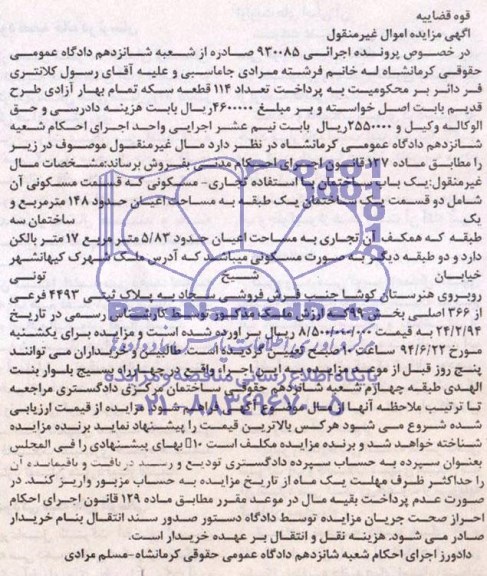 قوه قضاییه
آگهی مزایده اموال غیرمنقول
در خصوص پرونده اجرائی ۹۳۰۰۸۵ صادره از شعبه شانزدهم دادگاه عمومی
حقوقی کرمانشاه له خانم فرشته مرادی جاماسبی و علیه آقای رسول کلانتری
فر دائر بر محکومیت به پرداخت تعداد ۱۱۴ قطعه سکه تمام بهار آزادی طرح
قدیم بابت اصل خواسته و بر مبلغ ۴۶۰۰۰۰۰ریال بابت هزینه دادرسی و حق
الوکاله وکیل و ۲۵۵۰۰۰۰ریال بابت نیم عشر اجرایی واحد اجرای احکام شعبه
شانزدهم دادگاه عمومی کرمانشاه در نظر دارد مال غیرمنقول موصوف در زیر
را مطابق ماده ۱۳۷ قانون اجرای احکام مدنی بفروش برساند:مشخصات مال
غیرمنقول:یک باب ساختمان با استفاده تجاری- مسکونی که قسمت مسکونی آن
شامل دو قسمت یک ساختمان یک طبقه به مساحت اعیان حدود ۱۴۸ مترمربع و
یک ساختمان سه
طبقه که همکف آن تجاری به مساحت اعیان حدود ۵/۸۳ متر مربع ۱۷ متر بالکن
دارد و دو طبقه دیگر به صورت مسکونی میباشد که آدرس ملک شهرک کیهانشهر
خیابان شیخ تونی
روبروی هنرستان کوشا جنب فرش فروشی سجاد به پلاک ثبتی ۴۴۹۳ فرعی
از ۳۶۶ اصلی بخش ۹۹ که ارزش ملک مذکور توسط کارشناس رسمی در تاریخ
۲۴/۲/۹۴ به قیمت ۸/۵۰۰/۰۰۰/۰۰۰ ریال بر آورده شده است و مزایده برای یکشنبه
مورخ ۹۴/۶/۲۲ ساعت ۱۰ صبح تعیین گردیده است.طالبین و خریداران می توانند
پنج روز قبل از موعد مزایده به این اجرا واقع در چهارراه بسیج بلوار بنت
الهدی طبقه چهارم شعبه شانزدهم حقوقی ساختمان مرکزی دادگستری مراجعه
تا ترتیب ملاحظه آنها از مال موضوع آگهی فراهم شود مزایده از قیمت ارزیابی
شده شروع می شود هرکس بالاترین قیمت را پیشنهاد نماید برنده مزایده
شناخته خواهد شد و برنده مزایده مکلف است ۱۰٪ بهای پیشنهادی را فی المجلس
بعنوان سپرده به حساب سپرده دادگستری تودیع و رسید دریافت و باقیمانده آن
را حداکثر ظرف مهلت یک ماه از تاریخ مزایده به حساب مزبور واریز کند. در
صورت عدم پرداخت بقیه مال در موعد مقرر مطابق ماده ۱۲۹ قانون اجرای احکام
احراز صحت جریان مزایده توسط دادگاه دستور صدور سند انتقال بنام خریدار
صادر می شود. هزینه نقل و انتقال بر عهده خریدار است.
دادورز اجرای احکام شعبه شانزدهم دادگاه عمومی حقوقی کرمانشاه-مسلم مرادی
ParsNamadData
پایگاه اطلاع رسانی مناقصه و مزایده
۰۲۱-۸۸۳۴۹۶۷۰-۵